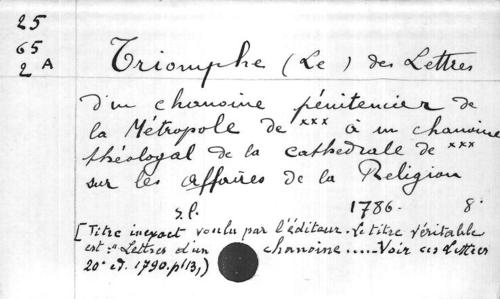 25
65
2 A
Triomphe (Le) des Lettres
d'un chanoine pénitencier de
la Métropole de xxx à un chanoine
théologal de la cathédrale de xxx
sur les affaires de la Religion
s.l. 1786. 8°
[Titre inexact voulu par l'éditeur. Le titre véritable
est: "Lettres d'un chanoine..... Voir ces Lettres
20e éd. 1790. p. 113,)